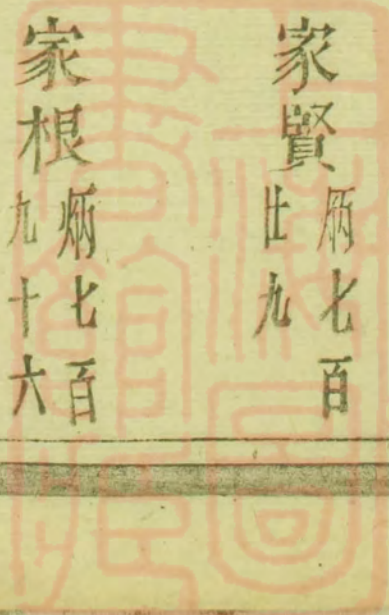 家賢
炳七百
廿九
家根
炳七百
九十六